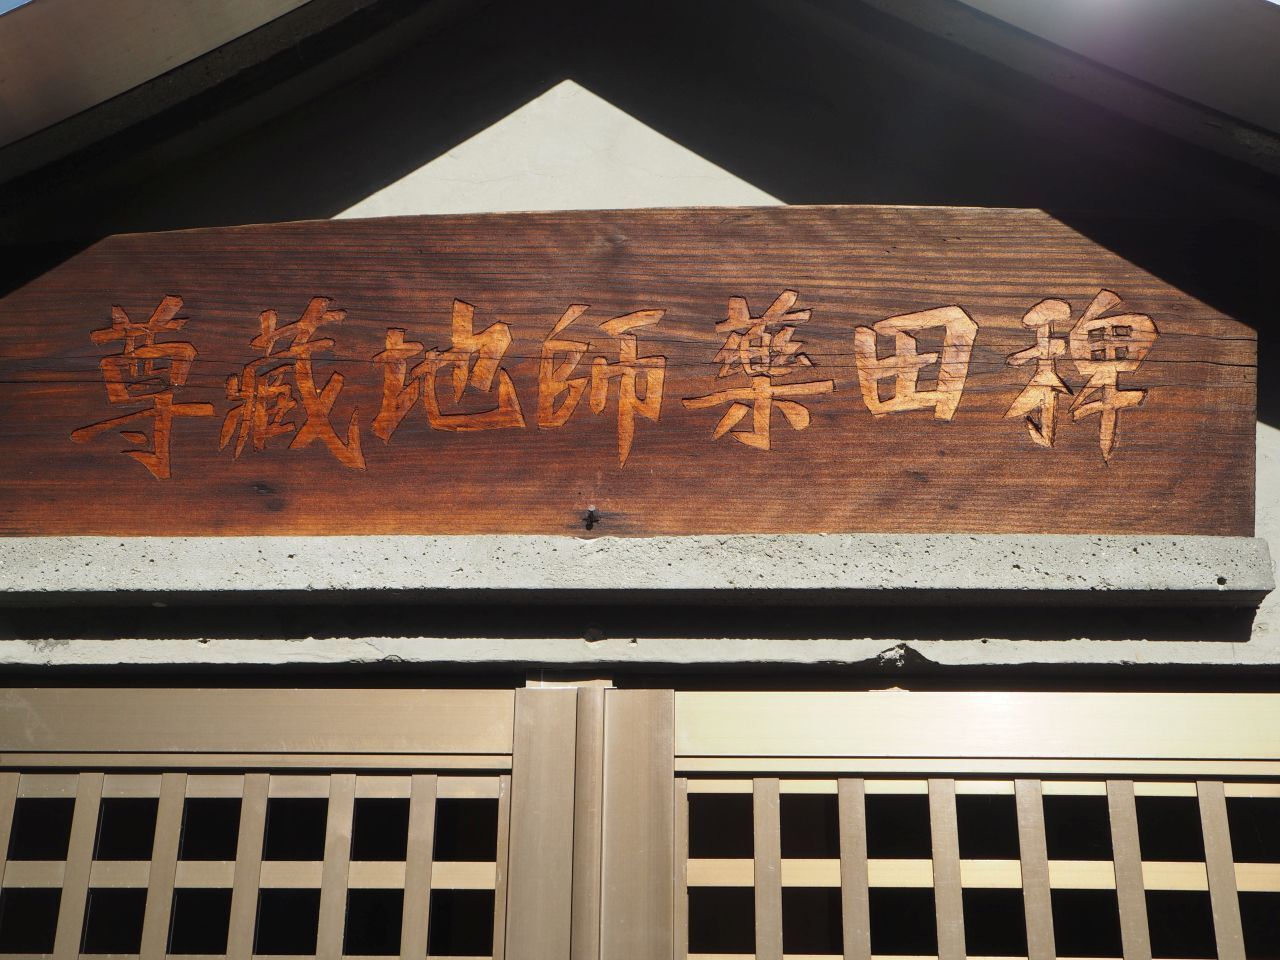 稗田藥師地藏尊